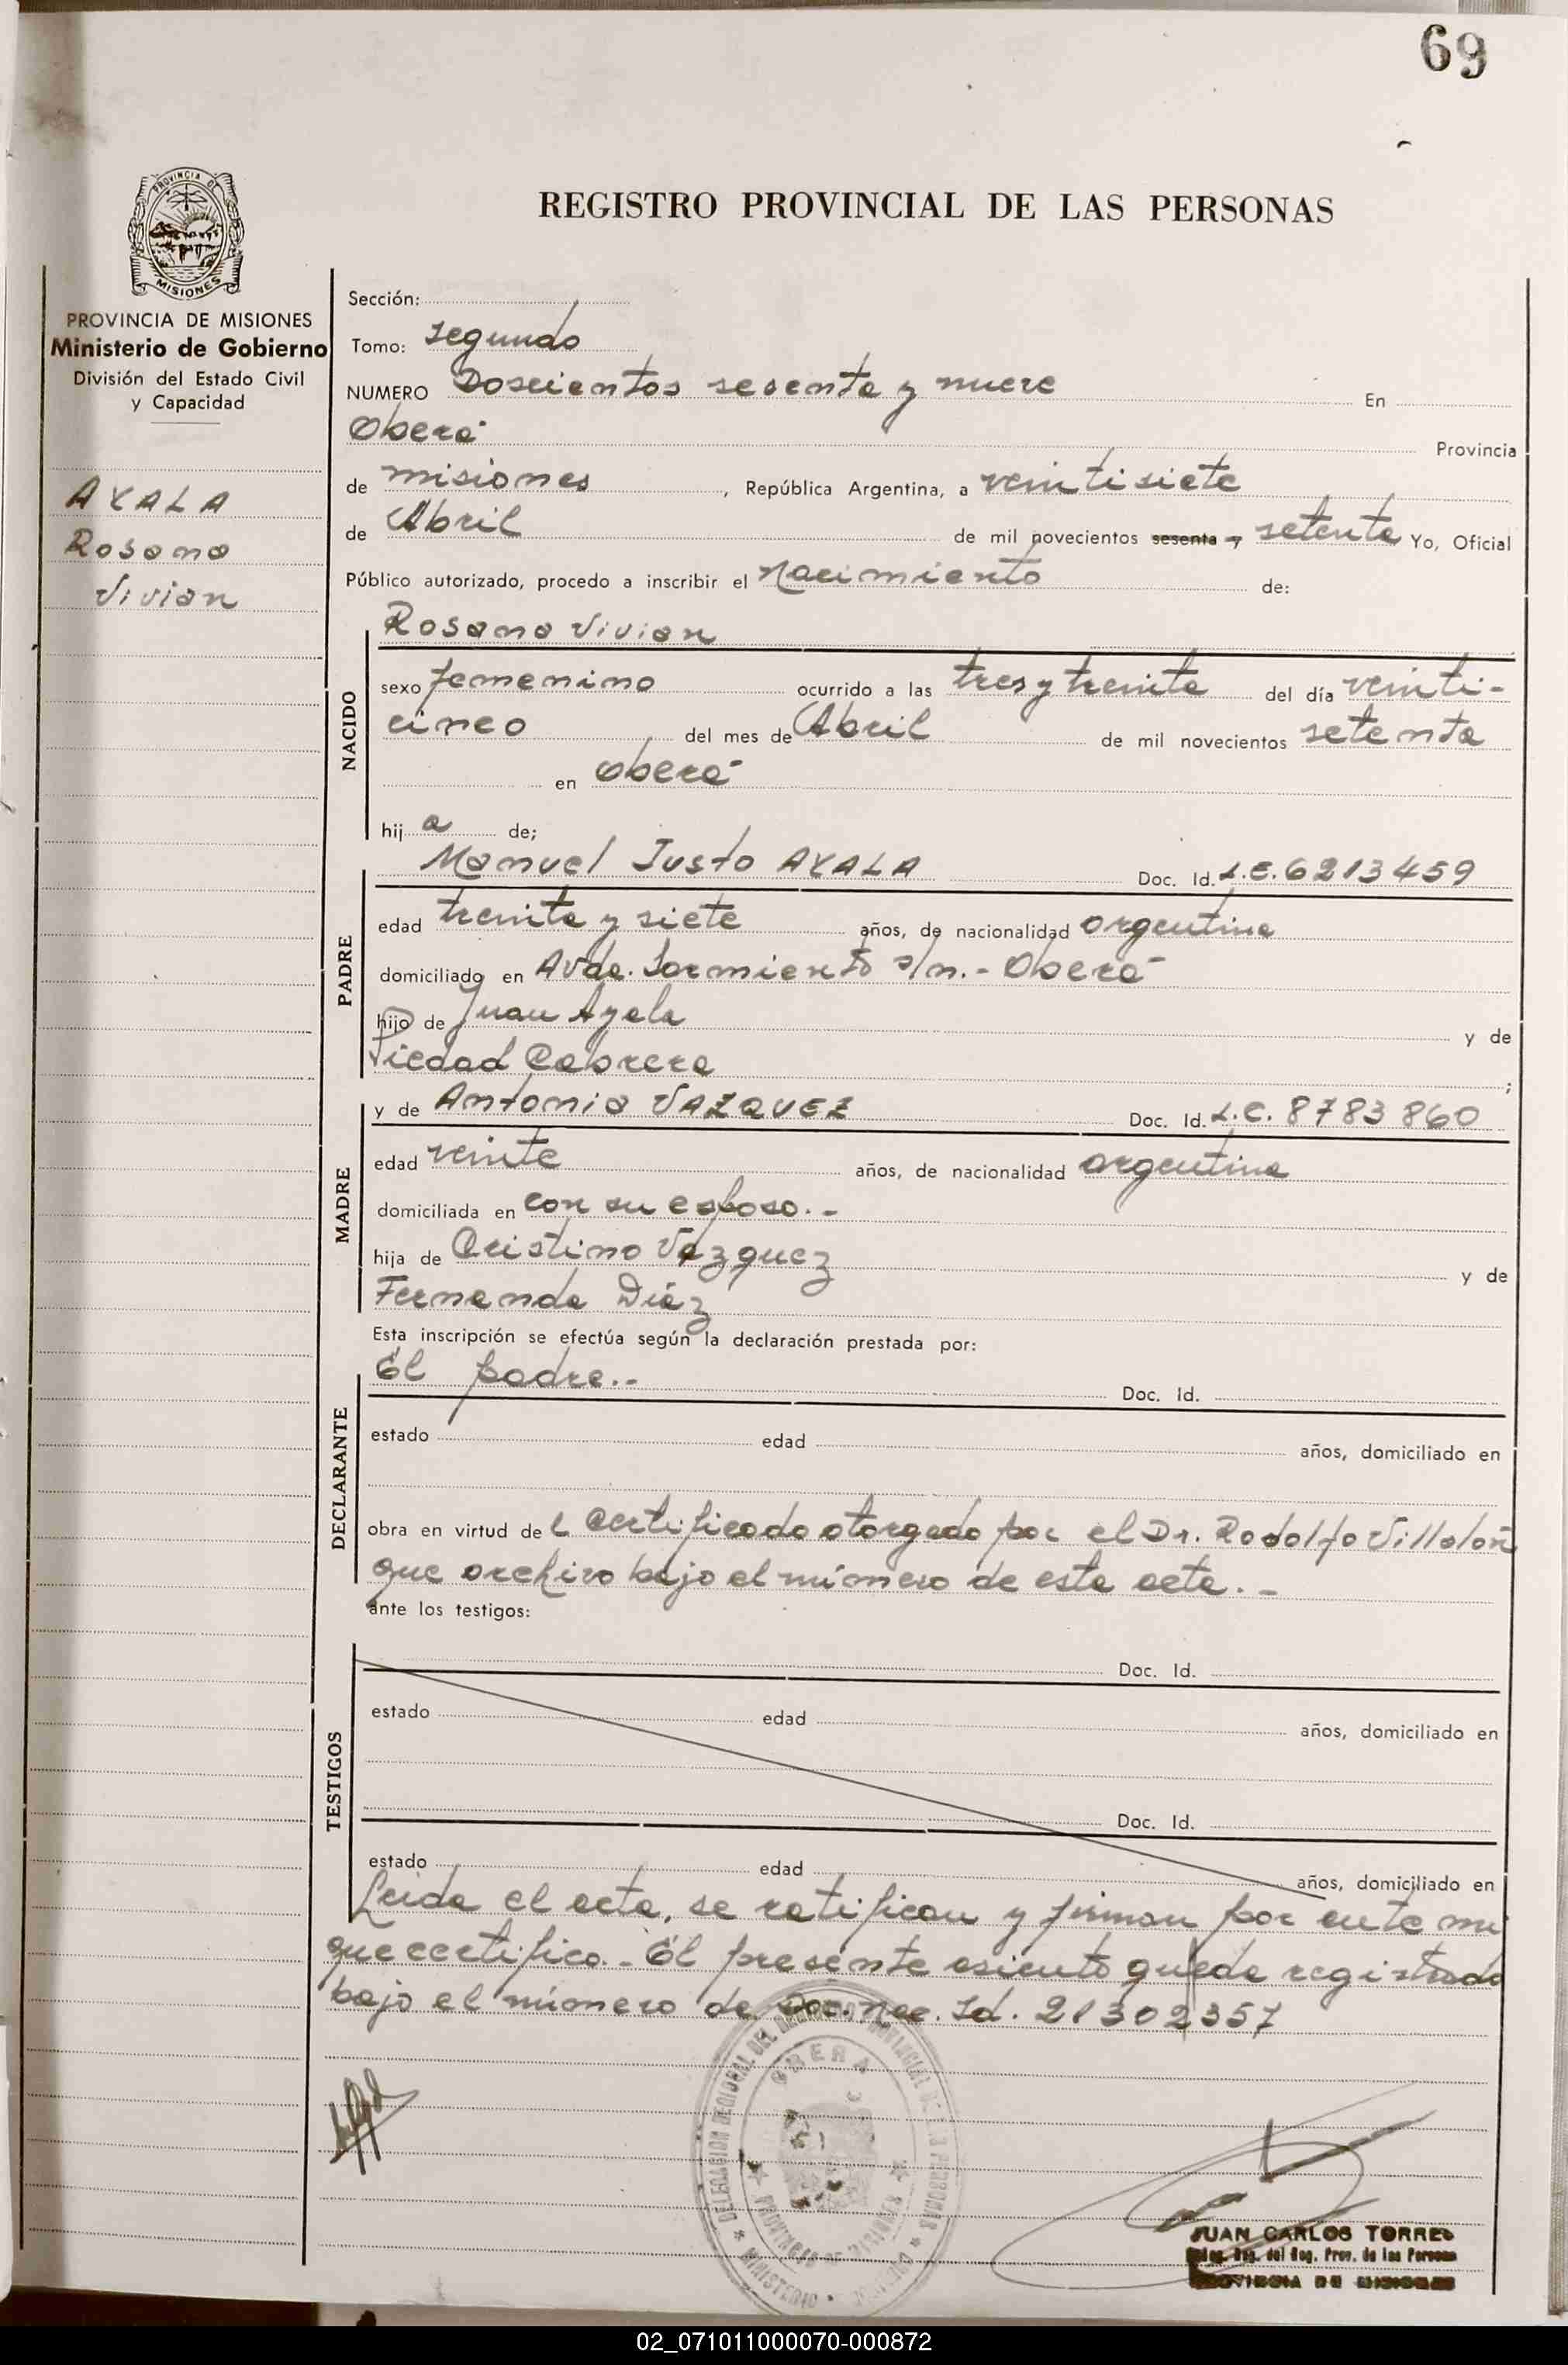 69
PROVINCIA DE
MISIONES
REGISTRO PROVINCIAL DE LAS PERSONAS
PROVINCIA DE MISIONES
Ministerio de Gobierno
División del Estado Civil
y Capacidad
AYALA
Rosana
Vivian
Sección:
Tomo: segundo
NUMERO Doscientos sesenta y nueve En
Oberá Provincia
de misiones, República Argentina, a veintisiete
de Abril de mil novecientos sesenta y setenta Yo, Oficial
Público autorizado, procedo a inscribir el nacimiento de:
Rosana Vivian
NACIDO
sexo femenino ocurrido a las tres y treinta del día veinti-
cinco del mes de Abril de mil novecientos setenta
en Oberá
hij a de;
Manuel Justo AYALA Doc. Id. L.E. 6213459
PADRE
edad treinta y siete años, de nacionalidad argentina
domiciliado en Avda. Sarmiento s/n.- Oberá
hijo de Juan Ayala y de
Piedad Cabrera ;
y de Antonia VAZQUEZ Doc. Id. L.C. 8783860
MADRE
edad veinte años, de nacionalidad argentina
domiciliada en con su esposo.-
hija de Cristino Vázquez y de
Fernanda Diáz
Esta inscripción se efectúa según la declaración prestada por:
El padre.- Doc. Id.
DECLARANTE
estado edad años, domiciliado en
obra en virtud de l certificado otorgado por el Dr. Rodolfo Villalón
que archivo bajo el número de esta acta.-
ante los testigos:
Doc. Id.
TESTIGOS
estado edad años, domiciliado en
Doc. Id.
estado edad años, domiciliado en
Leida el acta, se ratifican y firman por ante mi
que certifico.- El presente asiento queda registrado
bajo el número de Doc. Nac. Id. 21302357
DELEGACION REGIONAL DEL REGISTRO PROVINCIAL DE LAS PERSONAS
OBERA
PROVINCIA DE MISIONES
MINISTERIO
JUAN CARLOS TORRES
del Reg. Prov. de las Personas
PROVINCIA DE MISIONES
02_071011000070-000872